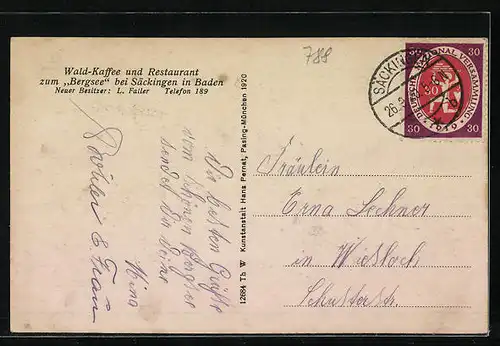 789
Wald-Kaffee und Restaurant
zum „Bergsee" bei Säckingen in Baden
Neuer Besitzer: L. Failer Telefon 189
Die besten Grüße
vom schönen Bergsee
sendet Dir Deine
Mina
12684 Th W Kunstanstalt Hans Pernat, Pasing-München 1920
SÄCKINGEN
26.
30 30
30 30
1919
Fräulein
Erna Lechner
in Wiesloch
Schusterstr.